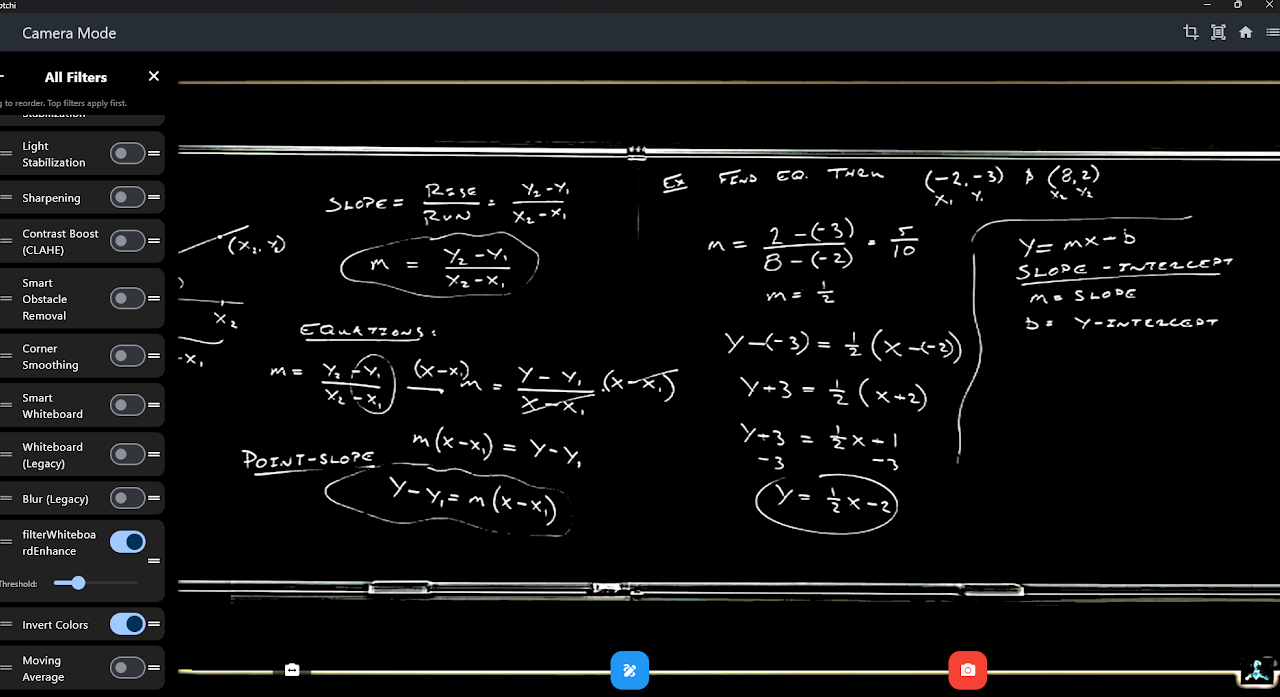 otchi
Camera Mode
All Filters
g to reorder. Top filters apply first.
Stabilization
Light
Stabilization
Sharpening
Contrast Boost
(CLAHE)
Smart
Obstacle
Removal
Corner
Smoothing
Smart
Whiteboard
Whiteboard
(Legacy)
Blur (Legacy)
filterWhiteboa
rdEnhance
Threshold:
Invert Colors
Moving
Average
(X₂, Y₂)
X₂
-X₁
SLOPE = RISE/RUN = Y₂-Y₁/X₂-X₁
m = Y₂-Y₁/X₂-X₁
EQUATIONS:
m = Y₂-Y₁/X₂-X₁
(X-X₁) m = Y-Y₁/X-X₁ · (X-X₁)
m(X-X₁) = Y-Y₁
POINT-SLOPE
Y-Y₁ = m(X-X₁)
EX FIND EQ. THRU (-2,-3) & (8,2)
X₁ Y₁ X₂ Y₂
m = 2-(-3)/8-(-2) = 5/10
m = 1/2
Y-(-3) = 1/2 (X-(-2))
Y+3 = 1/2 (X+2)
Y+3 = 1/2 X+1
-3 -3
Y = 1/2 X-2
Y = mX-b
SLOPE-INTERCEPT
m = SLOPE
b = Y-INTERCEPT